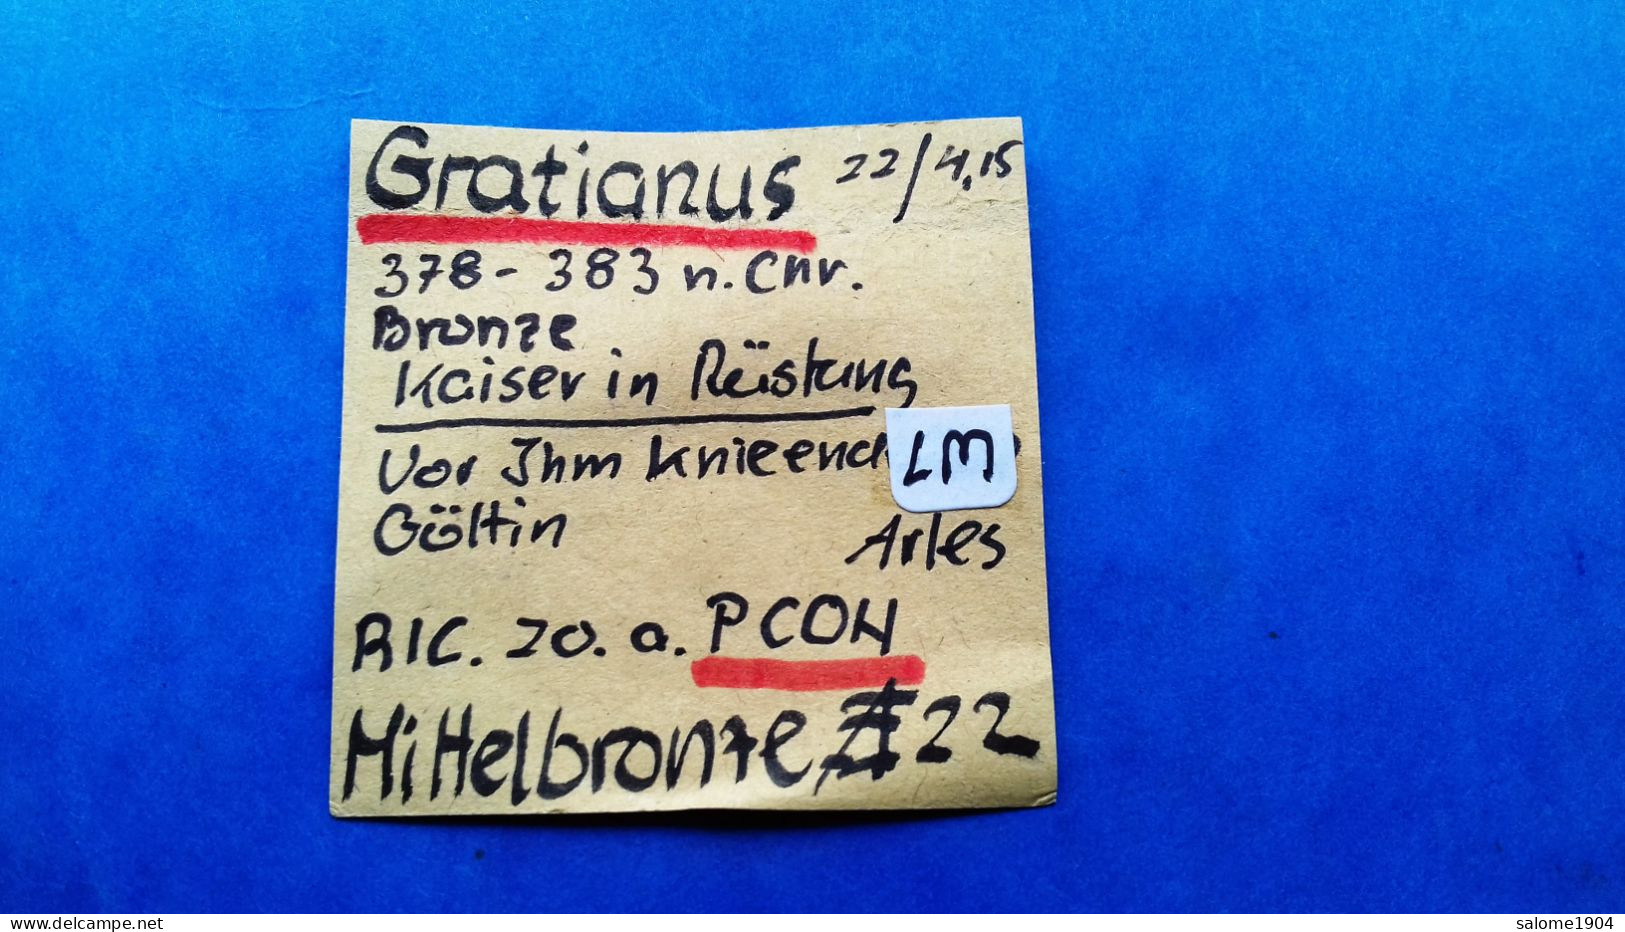 Gratianus 22/4,15
378-383 n. Chr.
Bronze
Kaiser in Rüstung
Vor Ihm knieend
LM
Göttin Arles
RIC. 20. a. PCON
Mittelbronze Æ 22
www.delcampe.net salome1904